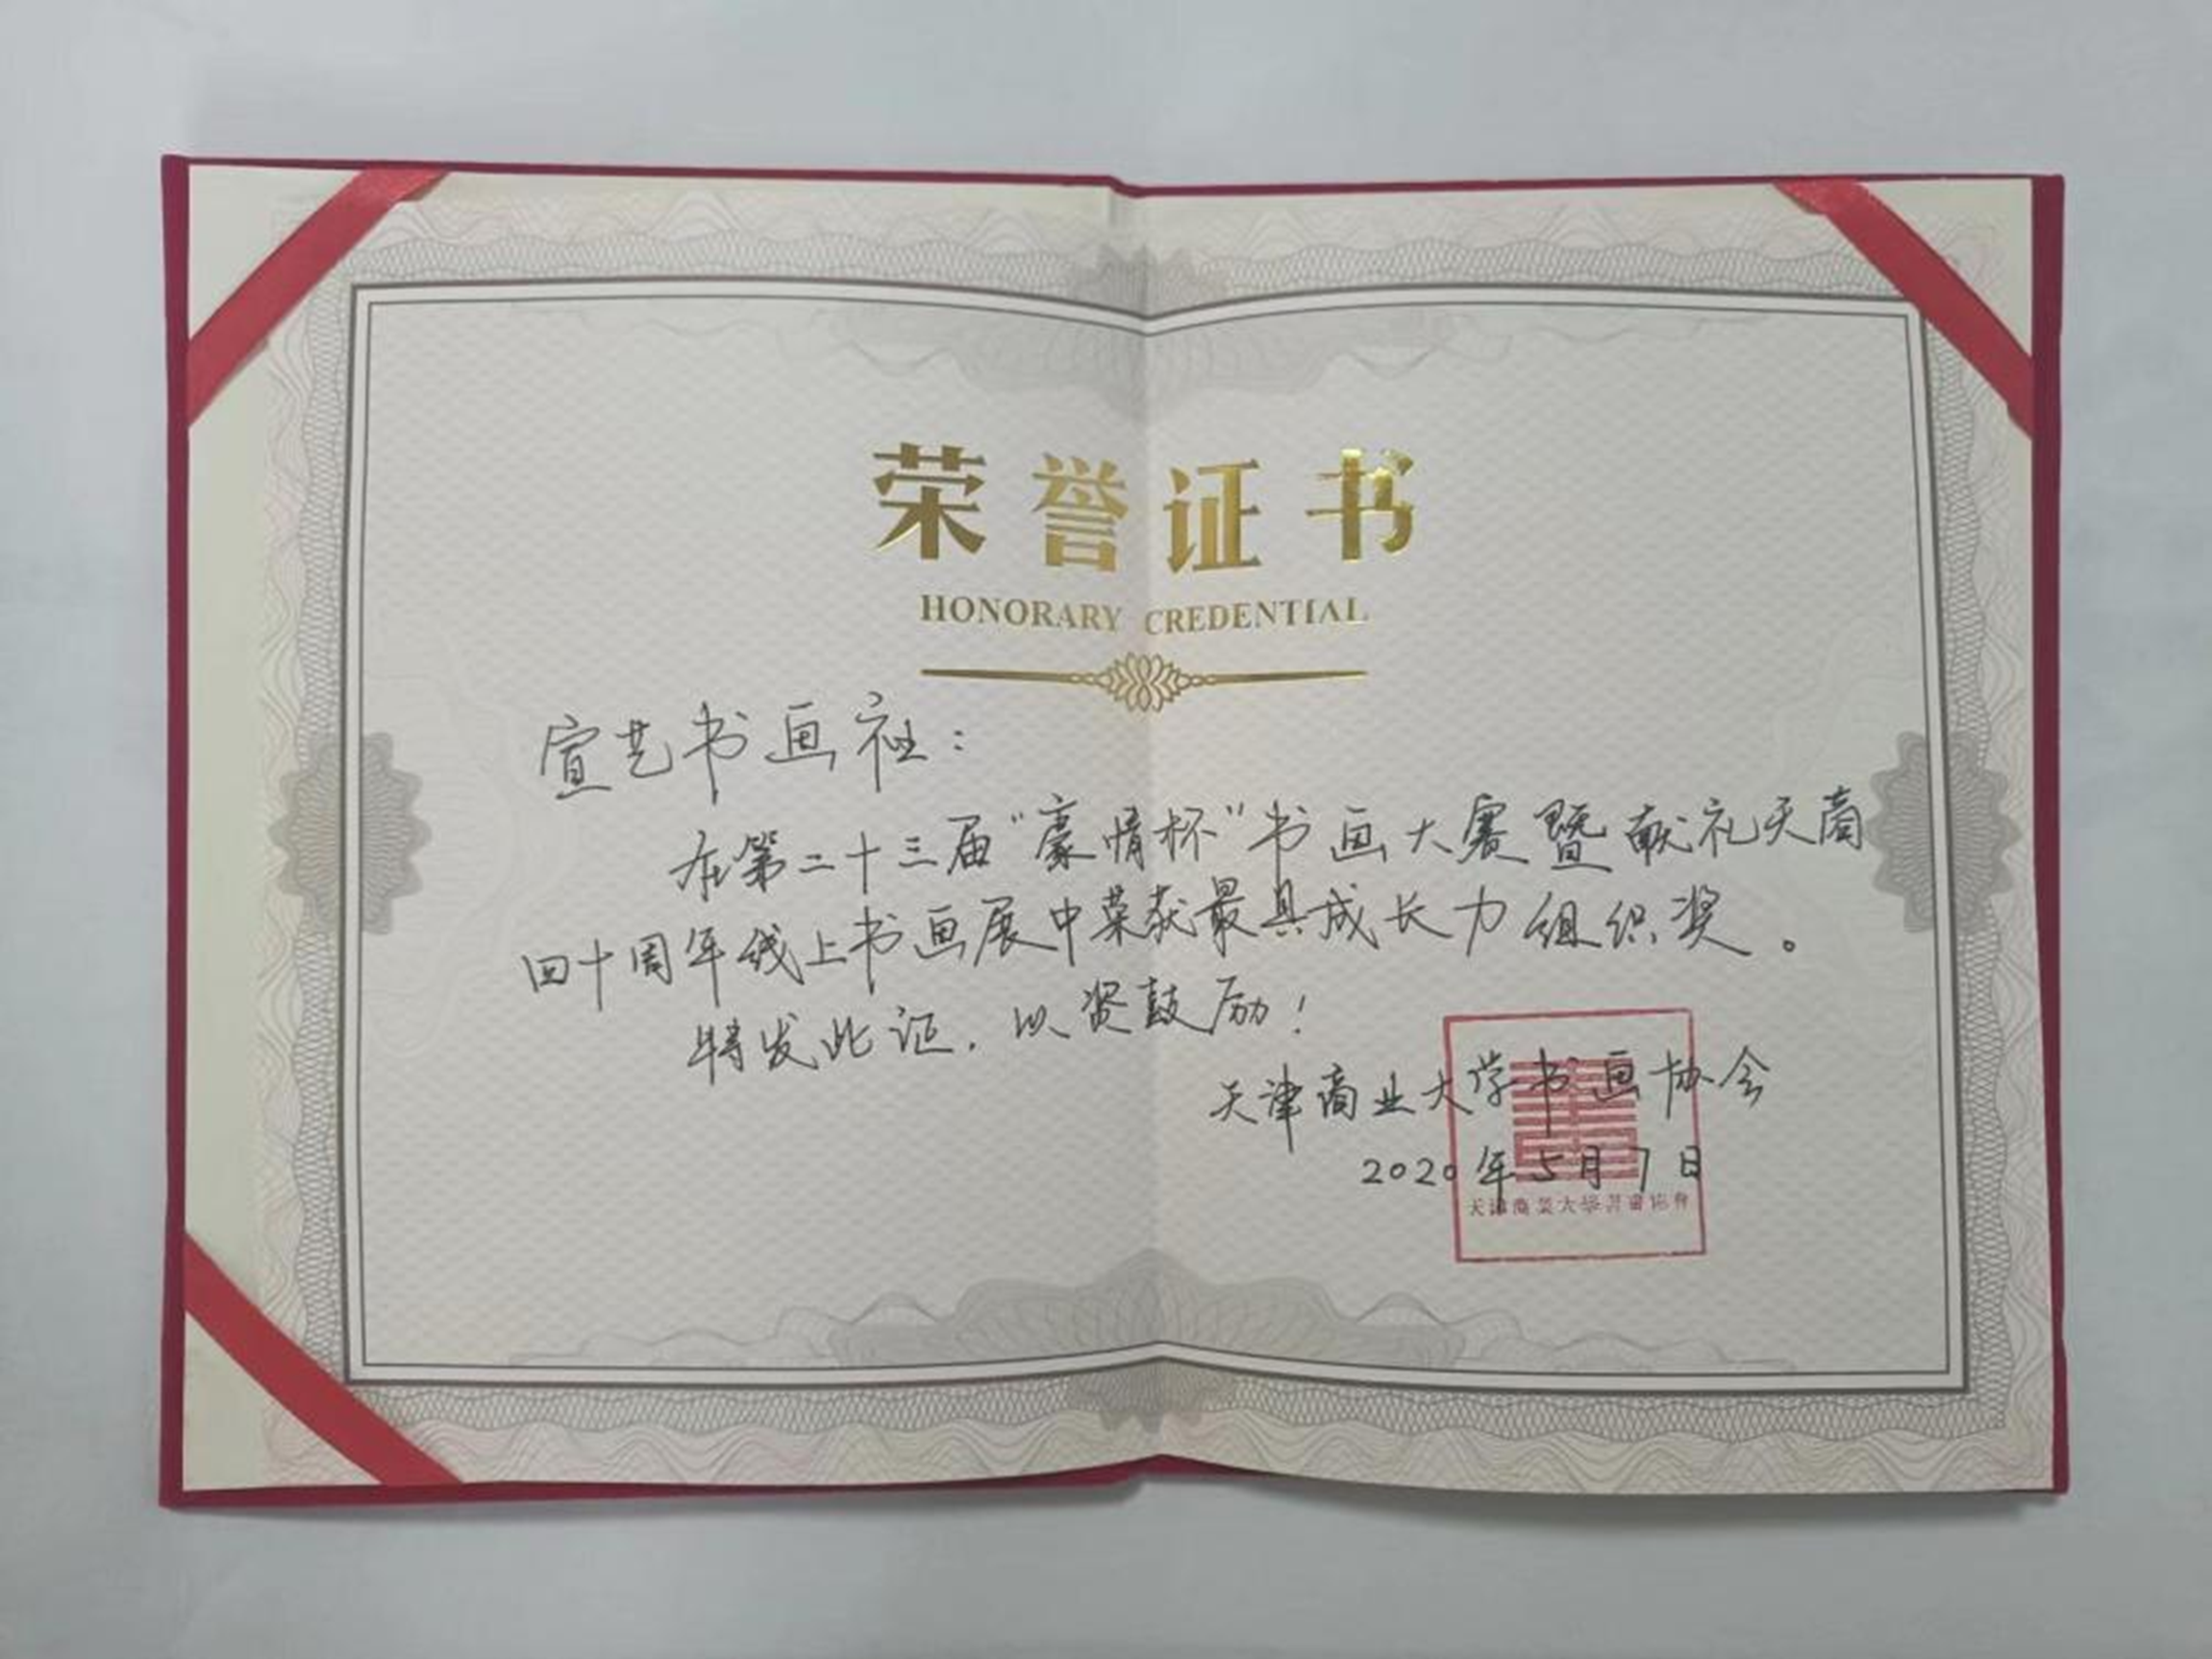 荣誉证书
HONORARY CREDENTIAL
宣艺书画社：
在第二十三届“豪情杯”书画大赛暨献礼天商
四十周年线上书画展中荣获最具成长力组织奖。
特发此证，以资鼓励！
天津商业大学书画协会
2020年5月7日
天津商業大學書畫協會